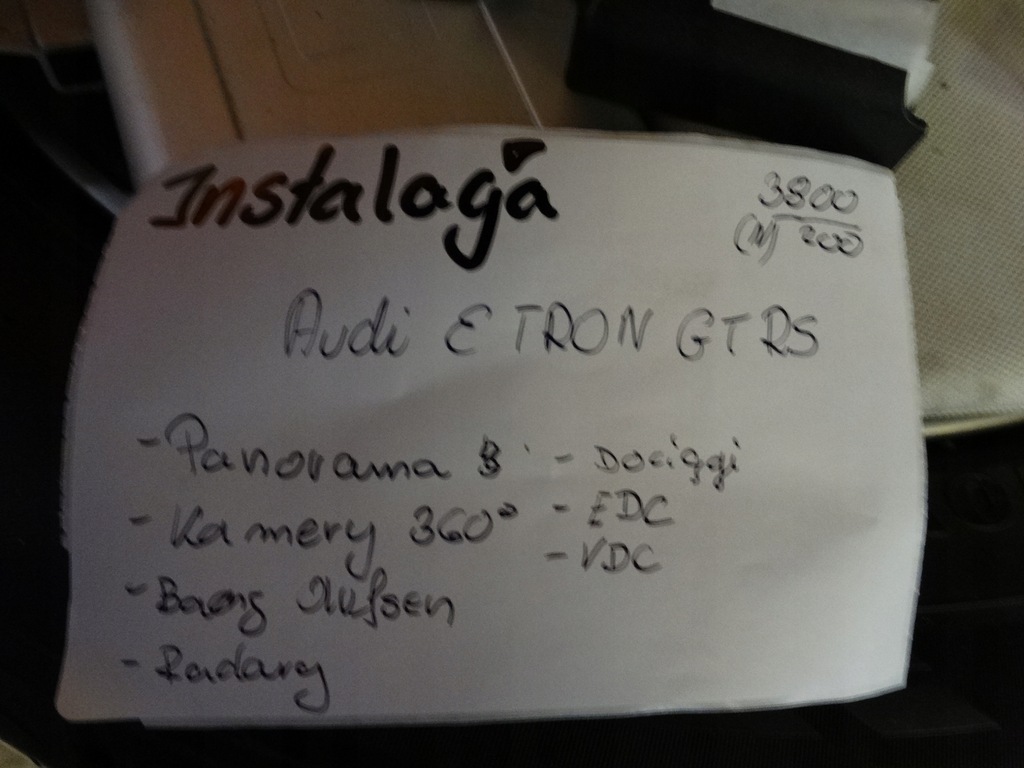 Instalacja
3800
(N) 200
Audi E TRON GT RS
- Panorama
- Kamery 360°
- Bang Olufsen
- Radary
- Dociągi
- EDC
- VDC